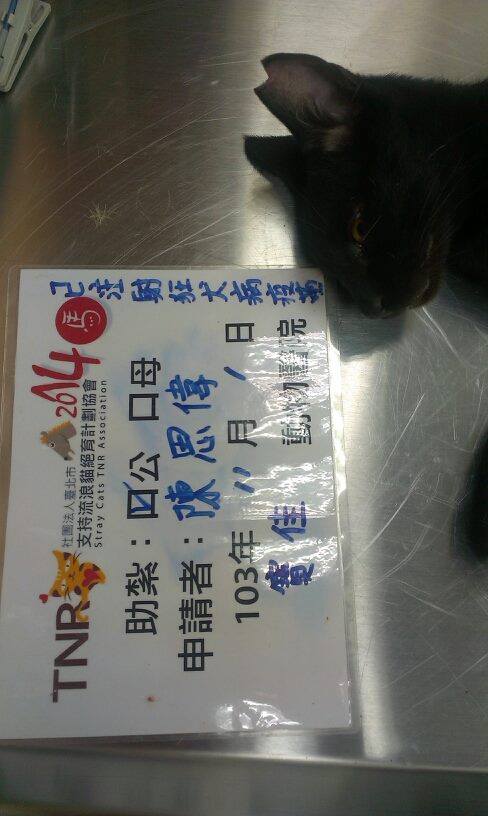 社團法人臺北市
支持流浪貓絕育計劃協會
Stray Cats TNR Association
TNR
2014
馬
已注射狂犬病疫苗
助紮：☑公 口母
申請者：陳思偉
103年 11 月 1 日
寶佳 動物醫院